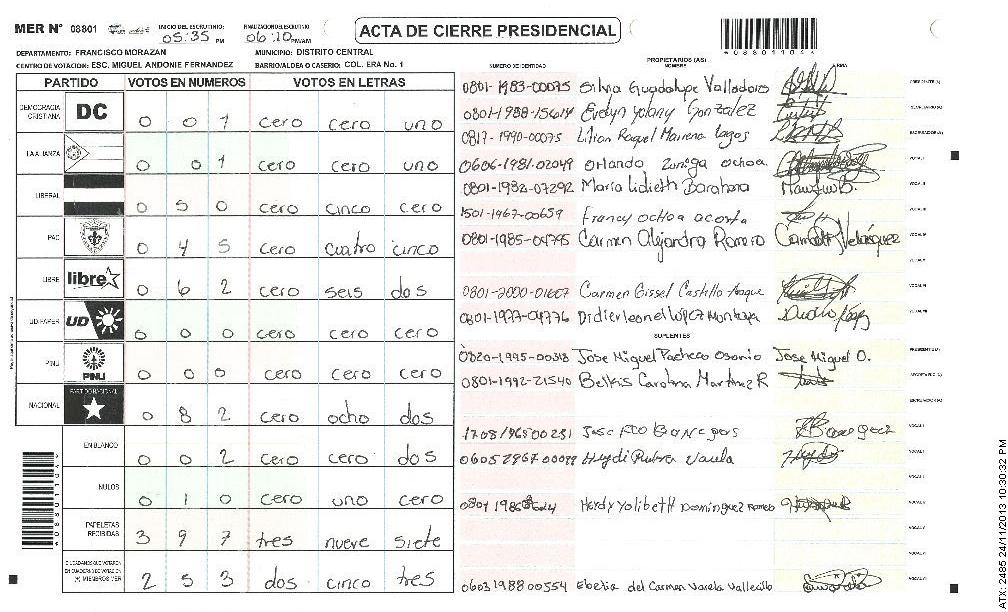 MER Nº 08801 INICIO DEL ESCRUTINIO: 05:35 PM FINALIZACION DEL ESCRUTINIO 06:10 PM/AM
ACTA DE CIERRE PRESIDENCIAL
DEPARTAMENTO: FRANCISCO MORAZAN MUNICIPIO: DISTRITO CENTRAL
CENTRO DE VOTACION: ESC. MIGUEL ANDONIE FERNANDEZ BARRIO/ALDEA O CASERIO: COL. ERA No. 1
PARTIDO VOTOS EN NUMEROS VOTOS EN LETRAS
DEMOCRACIA CRISTIANA DC 0 0 1 cero cero uno
LA ALIANZA 0 0 1 cero cero uno
LIBERAL 0 5 0 cero cinco cero
PAC 0 4 5 cero cuatro cinco
LIBRE libre 0 6 2 cero seis dos
UD-FAPER UD 0 0 0 cero cero cero
PINU PINU 0 0 0 cero cero cero
NACIONAL PARTIDO NACIONAL 0 8 2 cero ocho dos
EN BLANCO 0 0 2 cero cero dos
NULOS 0 1 0 cero uno cero
PAPELETAS RECIBIDAS 3 9 7 tres nueve siete
CIUDADANOS QUE VOTARON EN CUADERNO DE VOTACION (+) MIEMBROS MER 2 5 3 dos cinco tres
PROPIETARIOS (AS)
NUMERO DE IDENTIDAD NOMBRE FIRMA
0801-1983-00075 Silvia Guadalupe Valladares PRESIDENTE (A)
0801-1988-15614 Evelyn Yolany Gonzalez SECRETARIO (A)
0817-1990-00075 Lilian Raquel Mairena Lagos ESCRUTADOR (A)
0606-1981-02049 Orlando Zuniga Ochoa VOCAL I
0801-1982-07292 Maria Lidieth Barahona VOCAL II
1501-1967-00659 Francy Ochoa acosta VOCAL III
0801-1985-04795 Carmen Alejandra Romero VOCAL IV
VOCAL V
0801-2000-01607 Carmen Gissel Castillo VOCAL VI
0801-1977-04776 Didier Leonel López Montoya VOCAL VII
SUPLENTES
0820-1995-00318 Jose Miguel Pacheco Osorio Jose Miguel O. PRESIDENTE (A)
0801-1992-21540 Belkis Carolina Martinez R SECRETARIO (A)
ESCRUTADOR (A)
VOCAL I
Heydi Rubra Varela VOCAL II
Heydy Yolibeth Dominguez Romero
0603198800554 del Carmen Varela Vallecillo
*08801104*
ATX- 2485 24/11/2013 10:30:32 PM